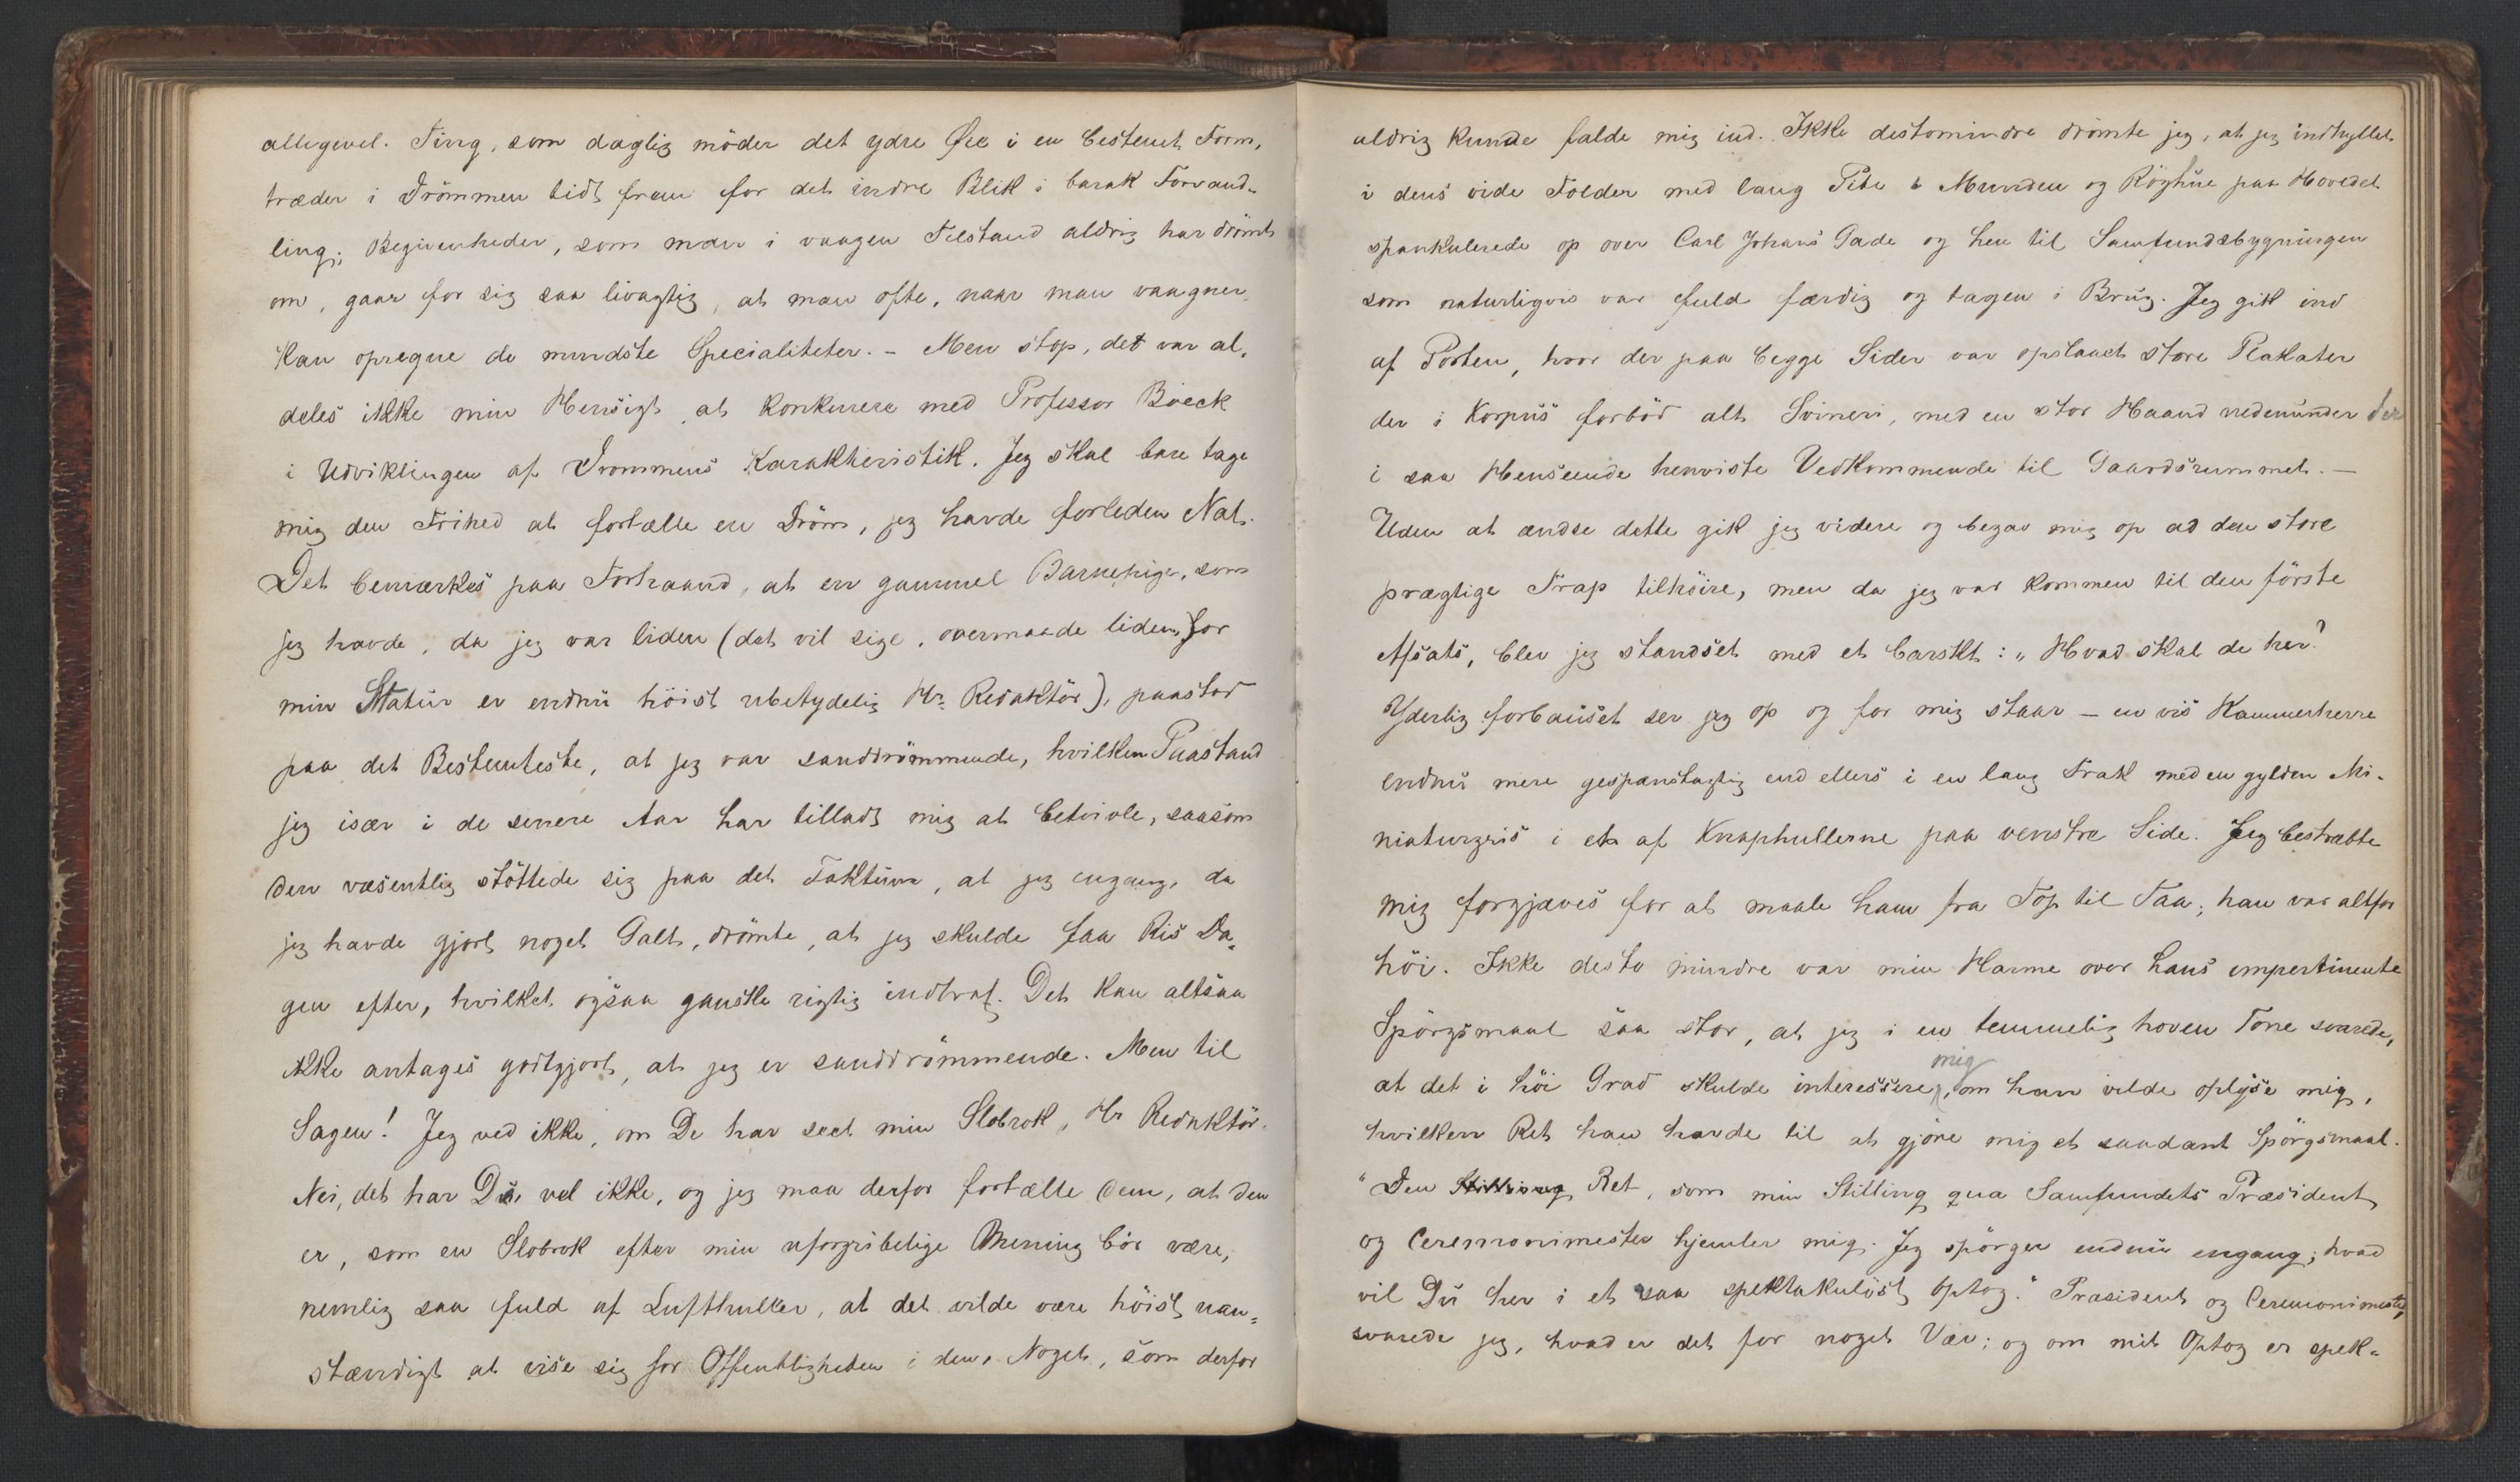 alligevel. Ting, som daglig möder det ydre Øie i en bestemt Form,
træder i Drömmen tidt frem for det indre Blik i barok Forvand-
ling; Begivenheder, som man i vaagen Tilstand aldrig har drömt
om, gaar for sig saa livagtig, at man ofte, naar man vaagner,
kan opregne de mindste Specialiteter. – Men stop, det var al-
deles ikke min Hensigt at konkurrere med Professor Boeck
i Udviklingen af Drommens Karakteristik. Jeg skal bare tage
mig den Frihed at fortælle en Dröm, jeg havde forleden Nat.
Det bemærkes paa Forhaand, at en gammel Barnepige, som
jeg havde, da jeg var liden (det vil sige, overmaade liden, for
min Statur er endnu höist ubetydelig Hr. Redaktör), paastod
paa det Bestemteste, at jeg var sanddrömmende, hvilken Paastand
jeg især i de senere Aar har tilladt mig at betvivle, saasom
den væsentlig stöttede sig paa det Faktum, at jeg engang, da
jeg havde gjort noget Galt, drömte, at jeg skulde faa Ris Da-
gen efter, hvilket ogsaa ganske rigtig indtraf. Det kan altsaa
ikke antages godtgjort, at jeg er sanddrömmende. Men til
Sagen! Jeg ved ikke, om De har seet min Slobrok, Hr Redaktör.
Nei, det har De vel ikke, og jeg maa derfor fortælle Dem, at den
er, som en Slobrok efter min uforgribelige Mening bör være,
nemlig saa fuld af Lufthuller, at det vilde være höist uan-
stændigt at vise sig for Offentligheden i den, Noget, som derfor
aldrig kunde falde mig ind. Ikke destomindre drömte jeg, at jeg indhyllet
i dens vide Folder med lang Pibe i Munden og Röghue paa Hovedet
spankulerede op over Carl Johans Gade og hen til Samfundsbygningen
som naturligvis var fuld færdig og tagen i Brug. Jeg gik ind
af Porten, hvor der paa begge Sider var opslaaet store Plakater
der i Korpus forböd alt Svineri, med en stor Haand nedenunder der
i saa Henseende henviste Vedkommende til Gaardsrummet. –
Uden at ændse dette gik jeg videre og begav mig op ad den store
prægtige Trap tilhöire, men da jeg var kommen til den förste
Afsats, blev jeg standset med et barskt: „Hvad skal de her?
Yderlig forbauset ser jeg op og for mig staar – en vis Kammerherre
endnu mere gespenstagtig end ellers i en lang Frak med en gylden Mi-
niaturgris i et af Knaphullerne paa venstre Side. Jeg bestræbte
mig forgjæves for at maale ham fra Top til Taa; han var altfor
höi. Ikke desto mindre var min Harme over hans impertinente
Spörgsmaal saa stor, at jeg i en temmelig hoven Tone svarede,
at det i höi Grad skulde interessere mig, om han vilde oplyse mig,
hvilken Ret han havde til at gjöre mig et saadant Spörgsmaal.
"Den Stilling Ret, som min Stilling qua Samfundets Præsident
og Ceremonimester hjemler mig. Jeg spörger endnu engang; hvad
vil Du her i et saa spektakulöst Optog." Præsident og Ceremonimester,
svarede jeg, hvad er det for noget Vær; og om mit Optog er spek-